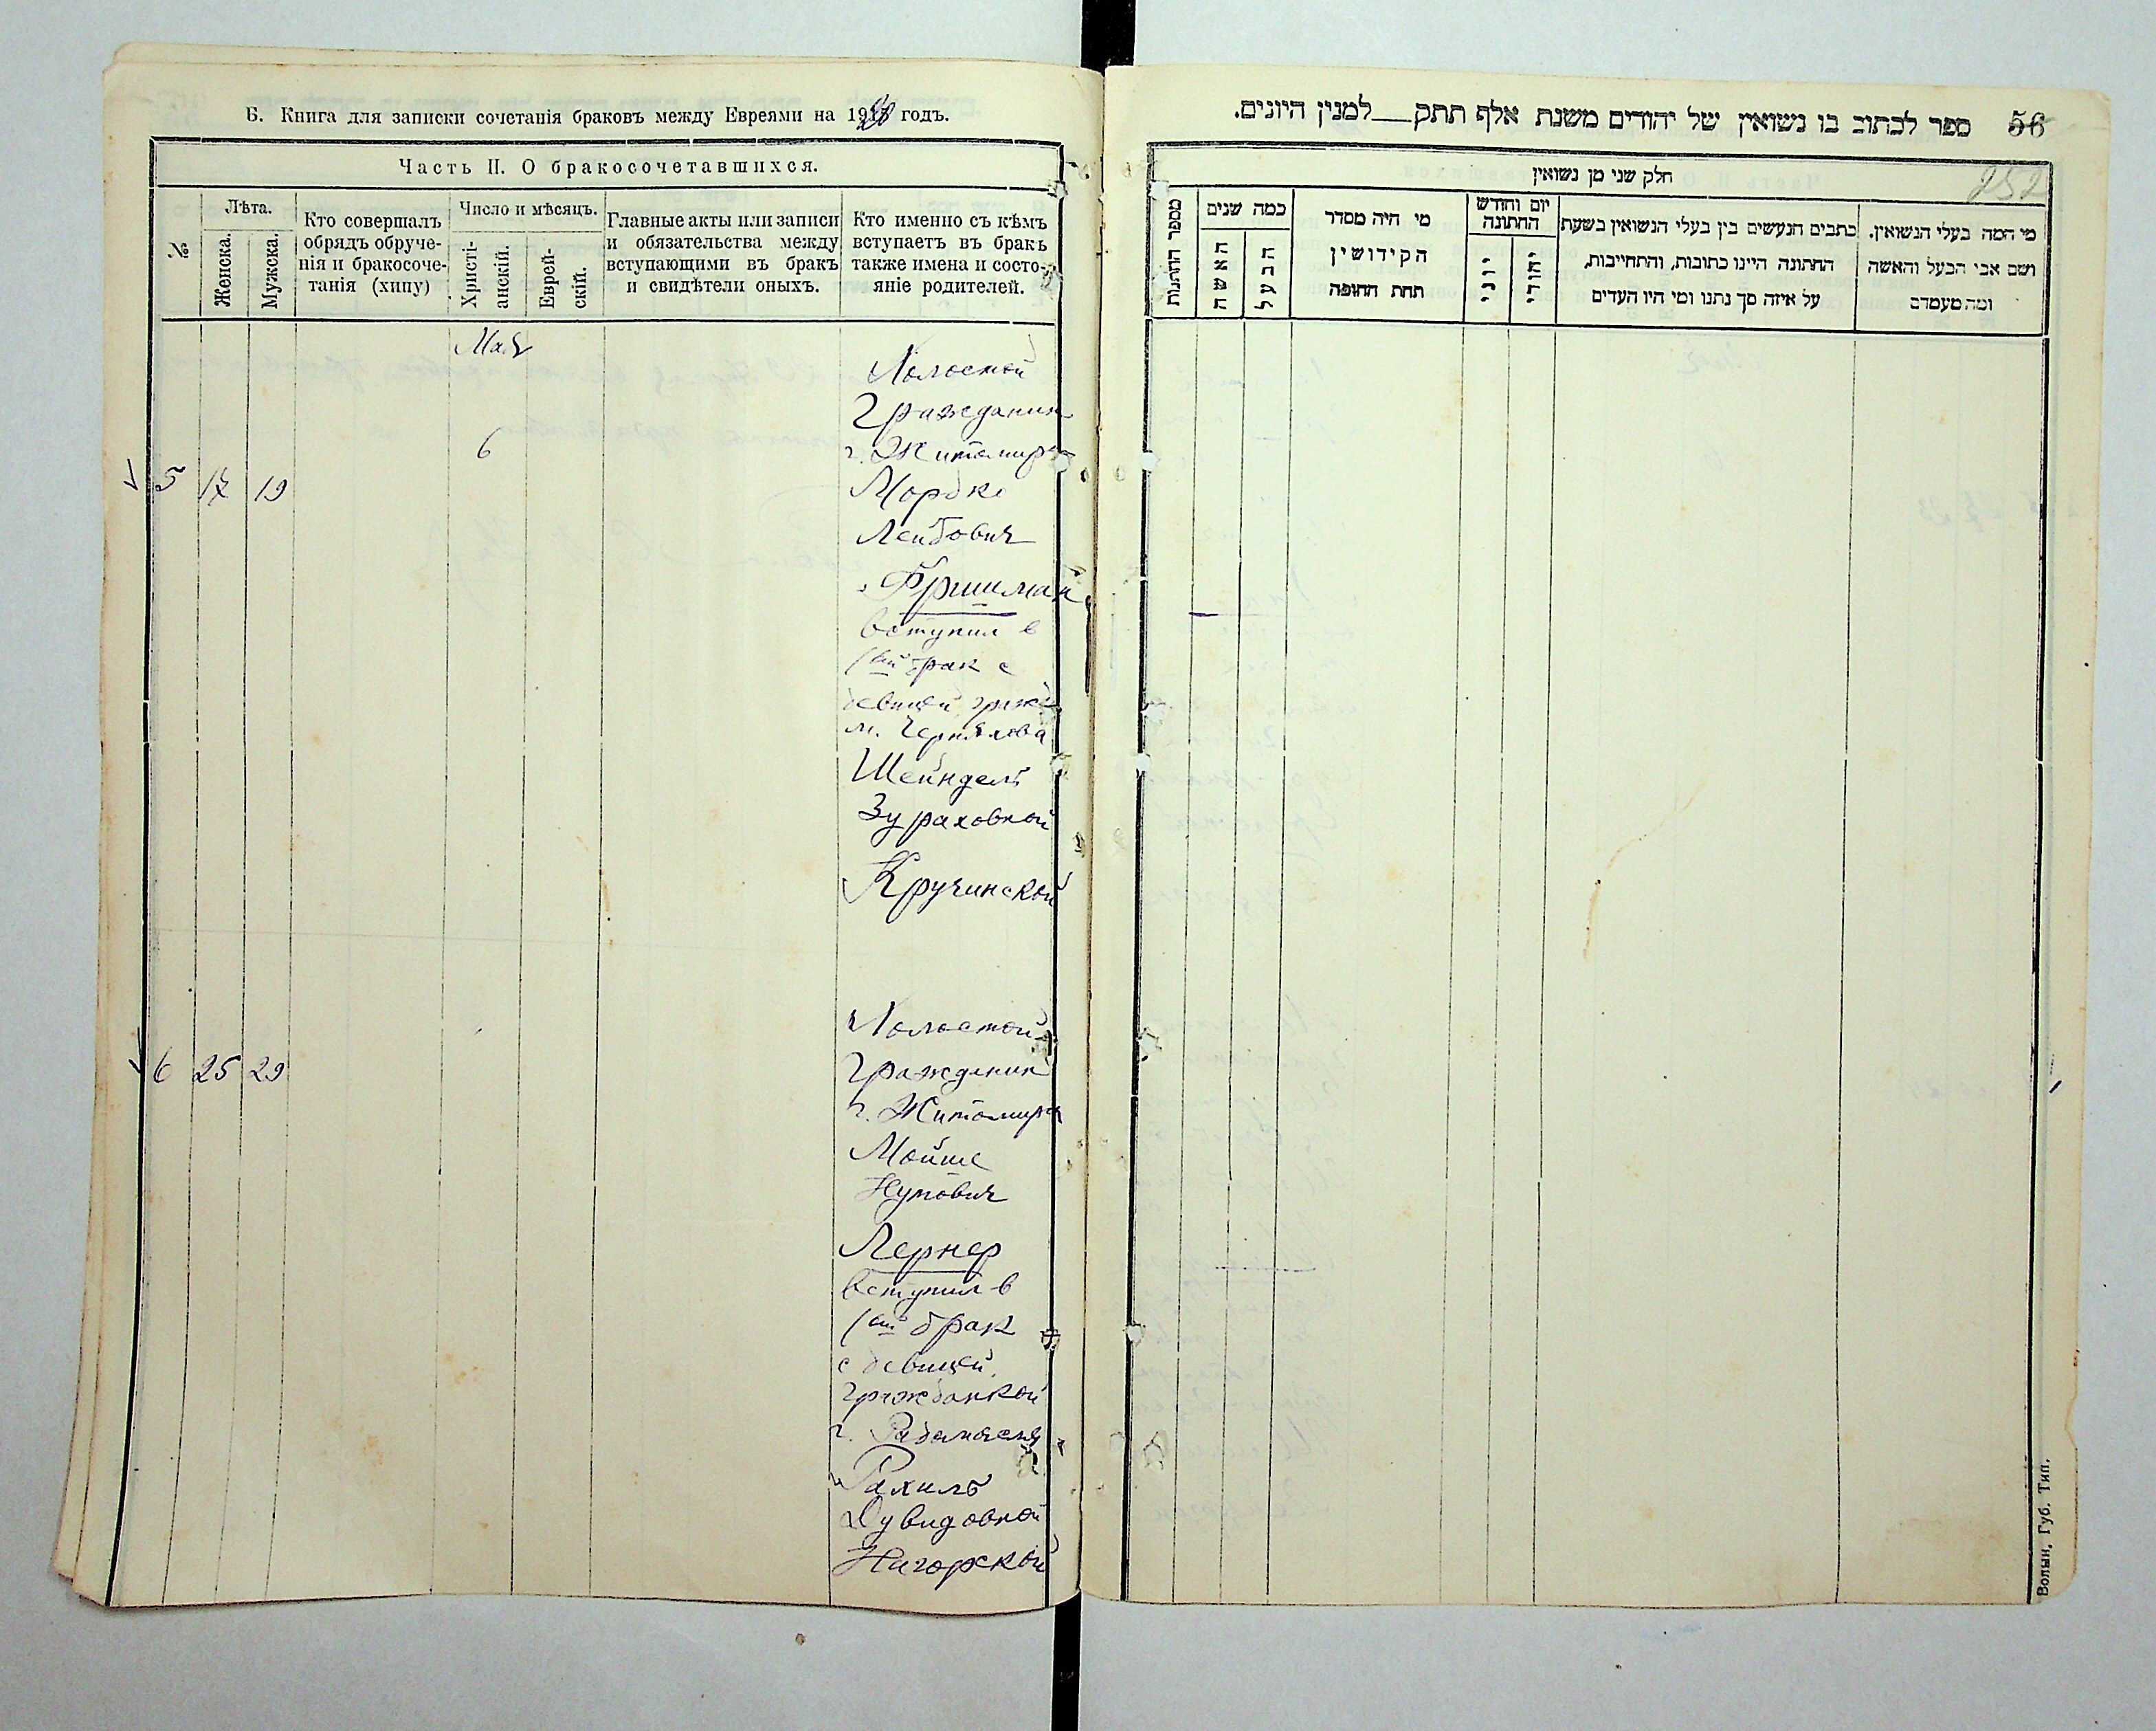 Б. Книга для записки сочетанія браковъ между Евреями на 1920 годъ.
Часть II. О бракосочетавшихся.
№
Лѣта.
Женска.
Мужска.
Кто совершалъ
обрядъ обруче-
нія и бракосоче-
танія (хипу)
Число и мѣсяцъ.
Христі-
анскій.
Еврей-
скій.
Главные акты или записи
и обязательства между
вступающими въ бракъ
и свидѣтели оныхъ.
Кто именно съ кѣмъ
вступаетъ въ бракъ
также имена и состо-
яніе родителей.
Мая
6
5 17 19
Холостой
Гражданин
г. Житомира
Мордко
Лейбович
Фришман
вступил в
1ый брак с
девицей, гражд
м. Черняхова
Шейндель
Зураховной
Кручинской
6 25 29
Холостой
Гражданин
г. Житомира
Мойше
Нутович
Лернер
вступил в
1ый брак
с девицей,
гражданкой
г. Радомысля
Рахиль
Дувидовной
Нагорской
ספר לכתוב בו נשואין של יהודים משנת אלף תתק__למנין היונים. 56
252
חלק שני מן נשואין
מספר החתנות
כמה שנים
האשה
הבעל
מי היה מסדר
הקידושין
תחת החופה
יום וחודש
החתונה
יוני
יהודי
כתבים הנעשים בין בעלי הנשואין בשעת
החתונה היינו כתובות, והתחייבות,
על איזה סך נתנו ומי היו העדים
מי המה בעלי הנשואין.
ושם אבי הבעל והאשה
ומה מעמדם
Волын. Губ. Тип.